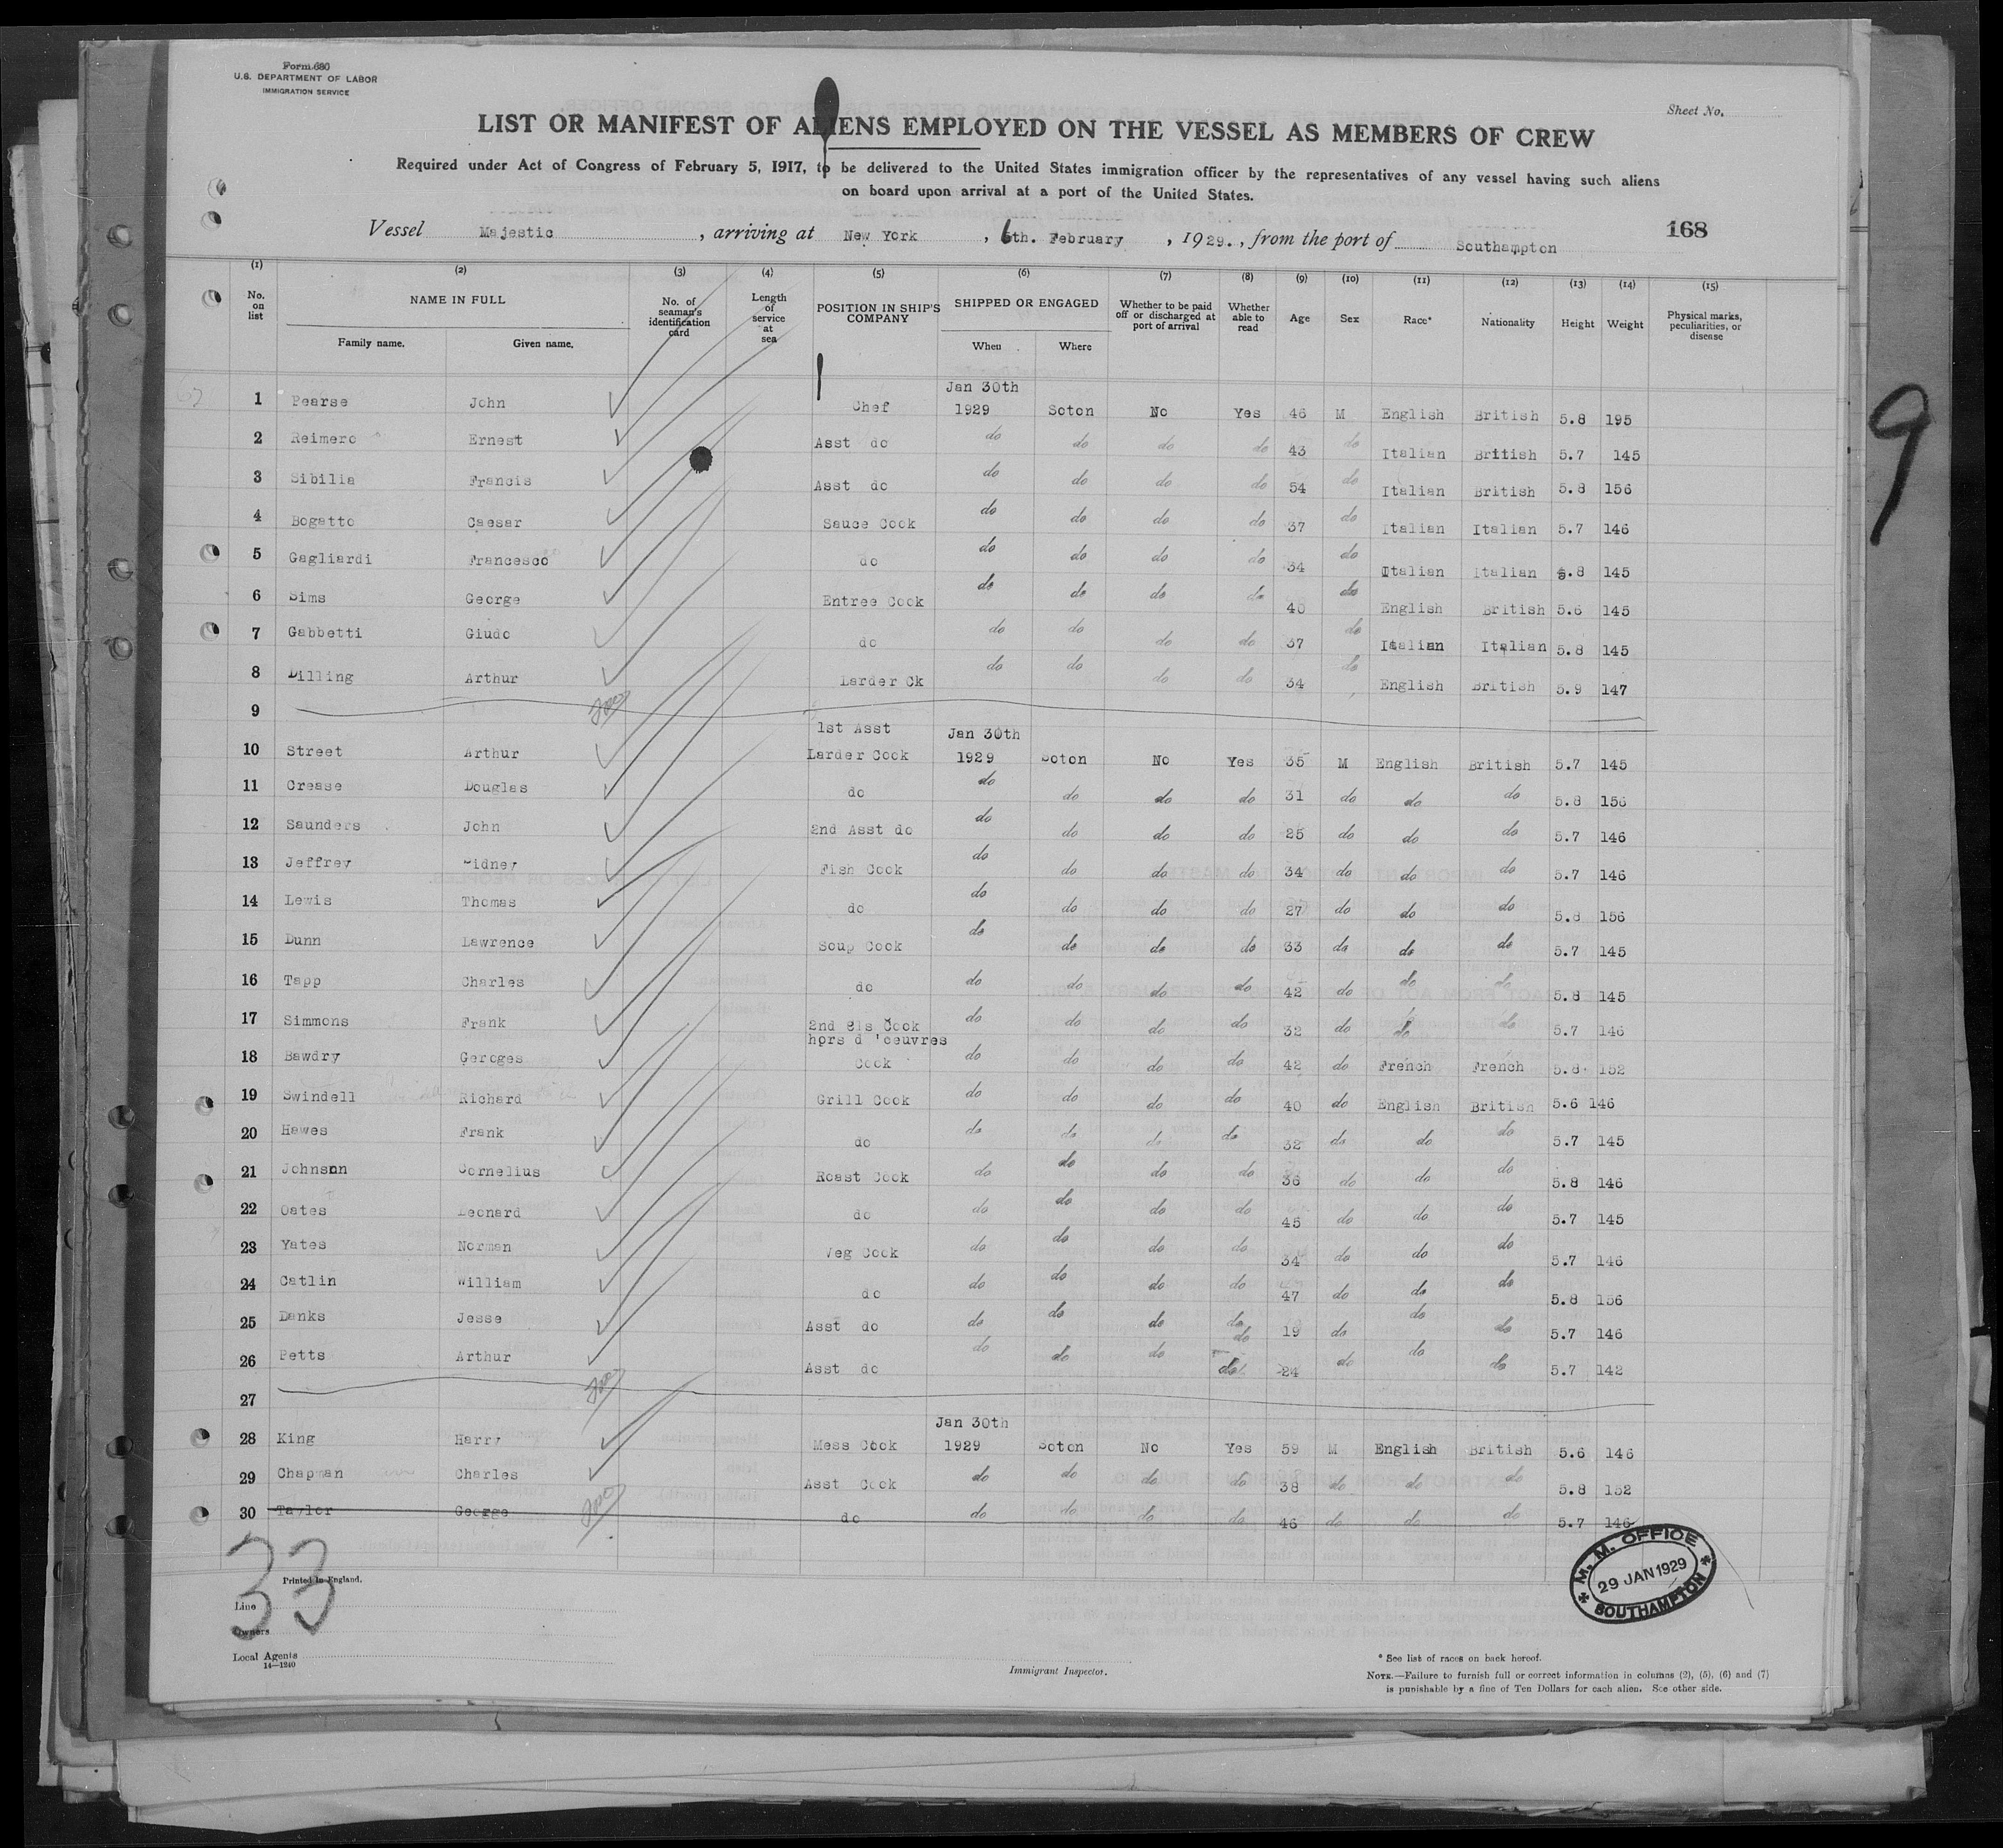 Form 680
U.S. DEPARTMENT OF LABOR
IMMIGRATION SERVICE
Sheet No.
LIST OR MANIFEST OF ALIENS EMPLOYED ON THE VESSEL AS MEMBERS OF CREW
Required under Act of Congress of February 5, 1917, to be delivered to the United States immigration officer by the representatives of any vessel having such aliens
on board upon arrival at a port of the United States.
168
Vessel Majestic, arriving at New York, 6th. February, 1929., from the port of Southampton
(1) (2) (3) (4) (5) (6) (7) (8) (9) (10) (11) (12) (13) (14) (15)
No. on list NAME IN FULL No. of seaman's identification card Length of service at sea POSITION IN SHIP'S COMPANY SHIPPED OR ENGAGED Whether to be paid off or discharged at port of arrival Whether able to read Age Sex Race* Nationality Height Weight Physical marks, peculiarities, or disease
Family name. Given name. When Where
1 Pearse John Chef Jan 30th 1929 Soton No Yes 46 M English British 5.8 195
2 Reimero Ernest Asst do do do do do 43 do Italian British 5.7 145
3 Sibilia Francis Asst do do do do do 54 do Italian British 5.8 156
4 Bogatto Caesar Sauce Cook do do do do 37 do Italian Italian 5.7 146
5 Gagliardi Francesco do do do do do 34 do Italian Italian 5.8 145
6 Sims George Entree Cook do do do do 40 do English British 5.6 145
7 Gabbetti Giudo do do do do do 37 do Italian Italian 5.8 145
8 Dilling Arthur Larder Ck do do do do 34 do English British 5.9 147
9
10 Street Arthur 1st Asst Larder Cook Jan 30th 1929 Soton No Yes 35 M English British 5.7 145
11 Crease Douglas do do do do do 31 do do do 5.8 156
12 Saunders John 2nd Asst do do do do do 25 do do do 5.7 146
13 Jeffrey Sidney Fish Cook do do do do 34 do do do 5.7 146
14 Lewis Thomas do do do do do 27 do do do 5.8 156
15 Dunn Lawrence Soup Cook do do do do 33 do do do 5.7 145
16 Tapp Charles do do do do do 42 do do do 5.8 145
17 Simmons Frank 2nd cls Cook do do do do 32 do do do 5.7 146
18 Bawdry Geroges hors d 'oeuvres Cook do do do do 42 do French French 5.8 152
19 Swindell Richard Grill Cook do do do do 40 do English British 5.6 146
20 Hawes Frank do do do do do 32 do do do 5.7 145
21 Johnsnn Cornelius Roast Cook do do do do 36 do do do 5.8 146
22 Oates Leonard do do do do do 45 do do do 5.7 145
23 Yates Norman Veg Cook do do do do 34 do do do 5.7 146
24 Catlin William do do do do do 47 do do do 5.8 156
25 Danks Jesse Asst do do do do do 19 do do do 5.7 146
26 Petts Arthur Asst do do do do do do 24 do do do 5.7 142
27
28 King Harry Mess Cook Jan 30th 1929 Soton No Yes 59 M English British 5.6 146
29 Chapman Charles Asst Cook do do do do 38 do do do 5.8 152
30 Taylor George do do do do do 46 do do do 5.7 146
33
9
Printed in England.
Line
Owners
Local Agents
14—1240
Immigrant Inspector.
M. M. OFFICE
29 JAN 1929
SOUTHAMPTON
* See list of races on back hereof.
NOTE.—Failure to furnish full or correct information in columns (2), (5), (6) and (7)
is punishable by a fine of Ten Dollars for each alien. See other side.